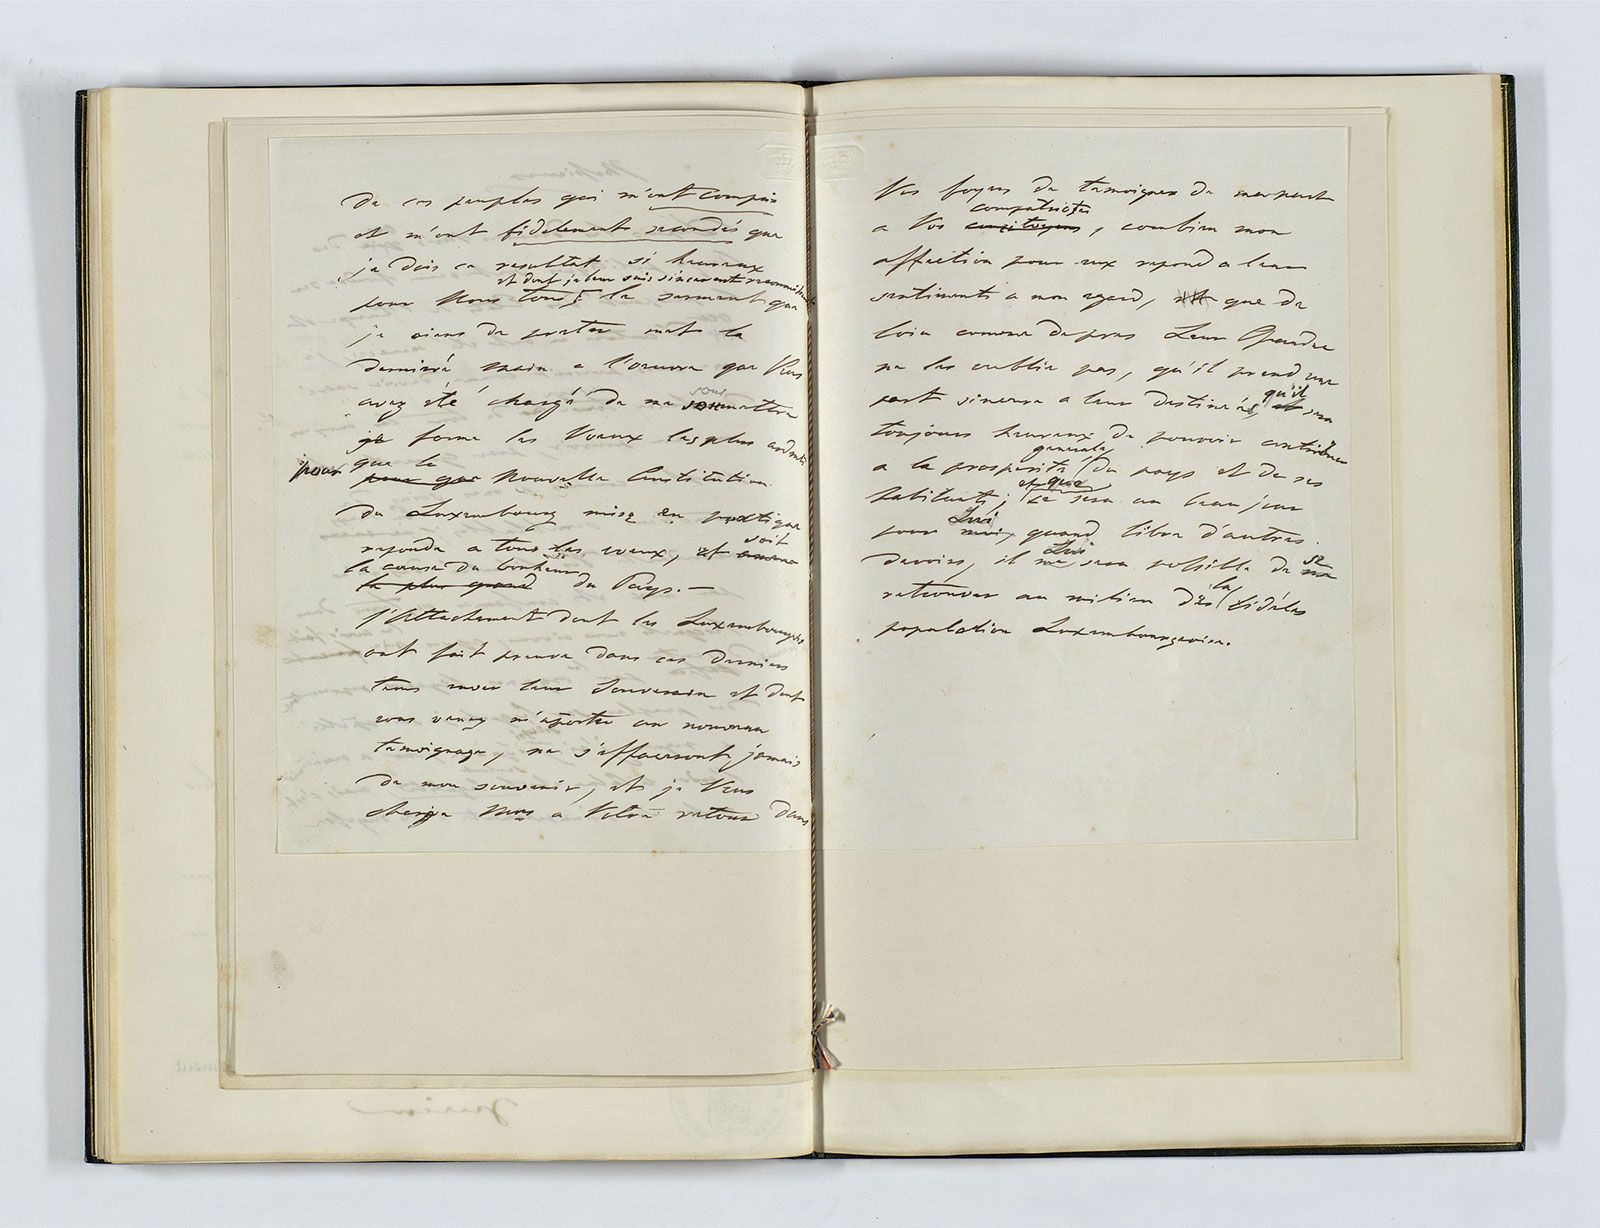 de ces peuples qui m'ont compris
et m'ont fidelement secondés que
je dois ce resultat si heureux
et dont je leur suis sincerement reconnaissant
pour Nous tous; le serment que
je viens de preter met la
derniere main a l'oeuvre que Vous
vous
avez été chargé de me soumettre
je forme les Voeux les plus ardents
que la
pour pour que Nouvelle Constitution
du Luxembourg mise en pratique
soit
reponde a tous les voeux, et
la cause du bonheur
le plus grand du Pays. —
l'attachement dont les Luxembourgeois
ont fait preuve dans ces derniers
tems envers leur Souverain et dont
vous venez m'aporter un nouveau
temoignage, ne s'effaceront jamais
de mon souvenir, et je Vous
charge Mrs a Votre retour dans
Vos foyers de temoigner de ma part
compatriotes
a Vos concitoyens, combien mon
affection pour eux repond a leurs
sentiments a mon egard, que de
loin comme de pres Leur Grand Duc
ne les oublie pas, qu'il prend une
qu'il
part sincere a leur destinée, et sera
toujours heureux de pouvoir contribuer
generale
a la prosperité du pays et de ses
et que
habitants; Ce sera un beau jour
Lui
pour moi, quand libre d'autres
Lui se
devoirs, il me sera possible de me
la
retrouver au milieu des fidéles
population Luxembourgeoise.